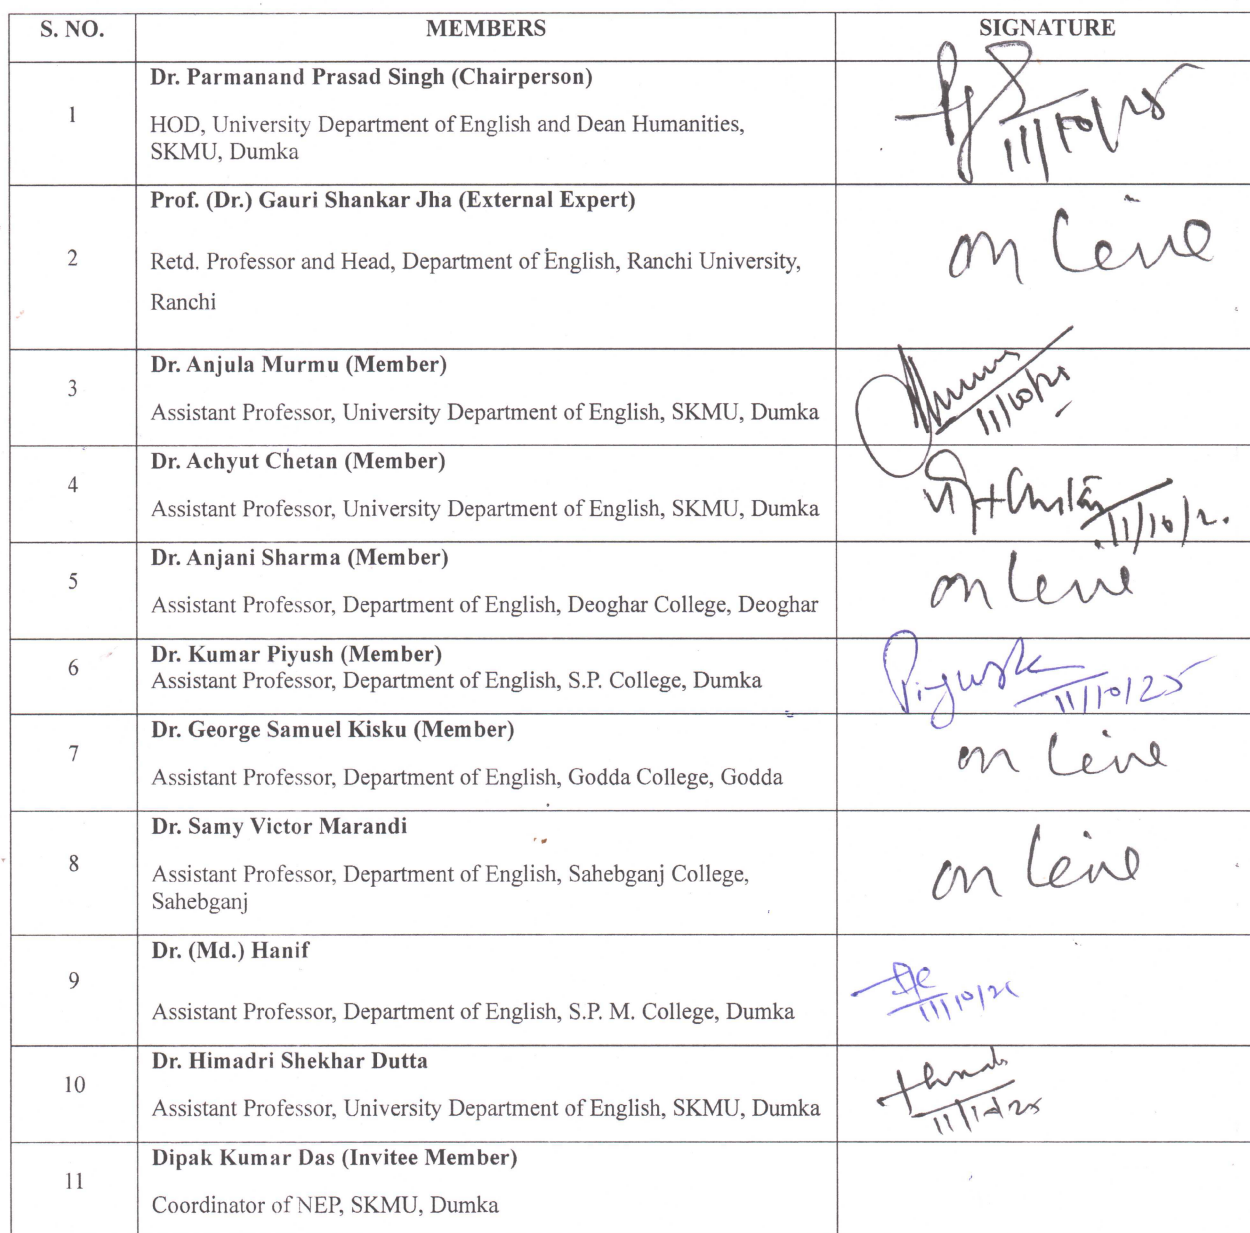 S. NO. MEMBERS SIGNATURE
1
Dr. Parmanand Prasad Singh (Chairperson)
HOD, University Department of English and Dean Humanities,
SKMU, Dumka
11/10/25
2
Prof. (Dr.) Gauri Shankar Jha (External Expert)
Retd. Professor and Head, Department of English, Ranchi University,
Ranchi
on line
3
Dr. Anjula Murmu (Member)
Assistant Professor, University Department of English, SKMU, Dumka
11/10/25
4
Dr. Achyut Chetan (Member)
Assistant Professor, University Department of English, SKMU, Dumka
11/10/2.
5
Dr. Anjani Sharma (Member)
Assistant Professor, Department of English, Deoghar College, Deoghar
on line
6
Dr. Kumar Piyush (Member)
Assistant Professor, Department of English, S.P. College, Dumka
Piyush
11/10/25
7
Dr. George Samuel Kisku (Member)
Assistant Professor, Department of English, Godda College, Godda
on line
8
Dr. Samy Victor Marandi
Assistant Professor, Department of English, Sahebganj College,
Sahebganj
on line
9
Dr. (Md.) Hanif
Assistant Professor, Department of English, S.P. M. College, Dumka
11/10/25
10
Dr. Himadri Shekhar Dutta
Assistant Professor, University Department of English, SKMU, Dumka
11/10/25
11
Dipak Kumar Das (Invitee Member)
Coordinator of NEP, SKMU, Dumka